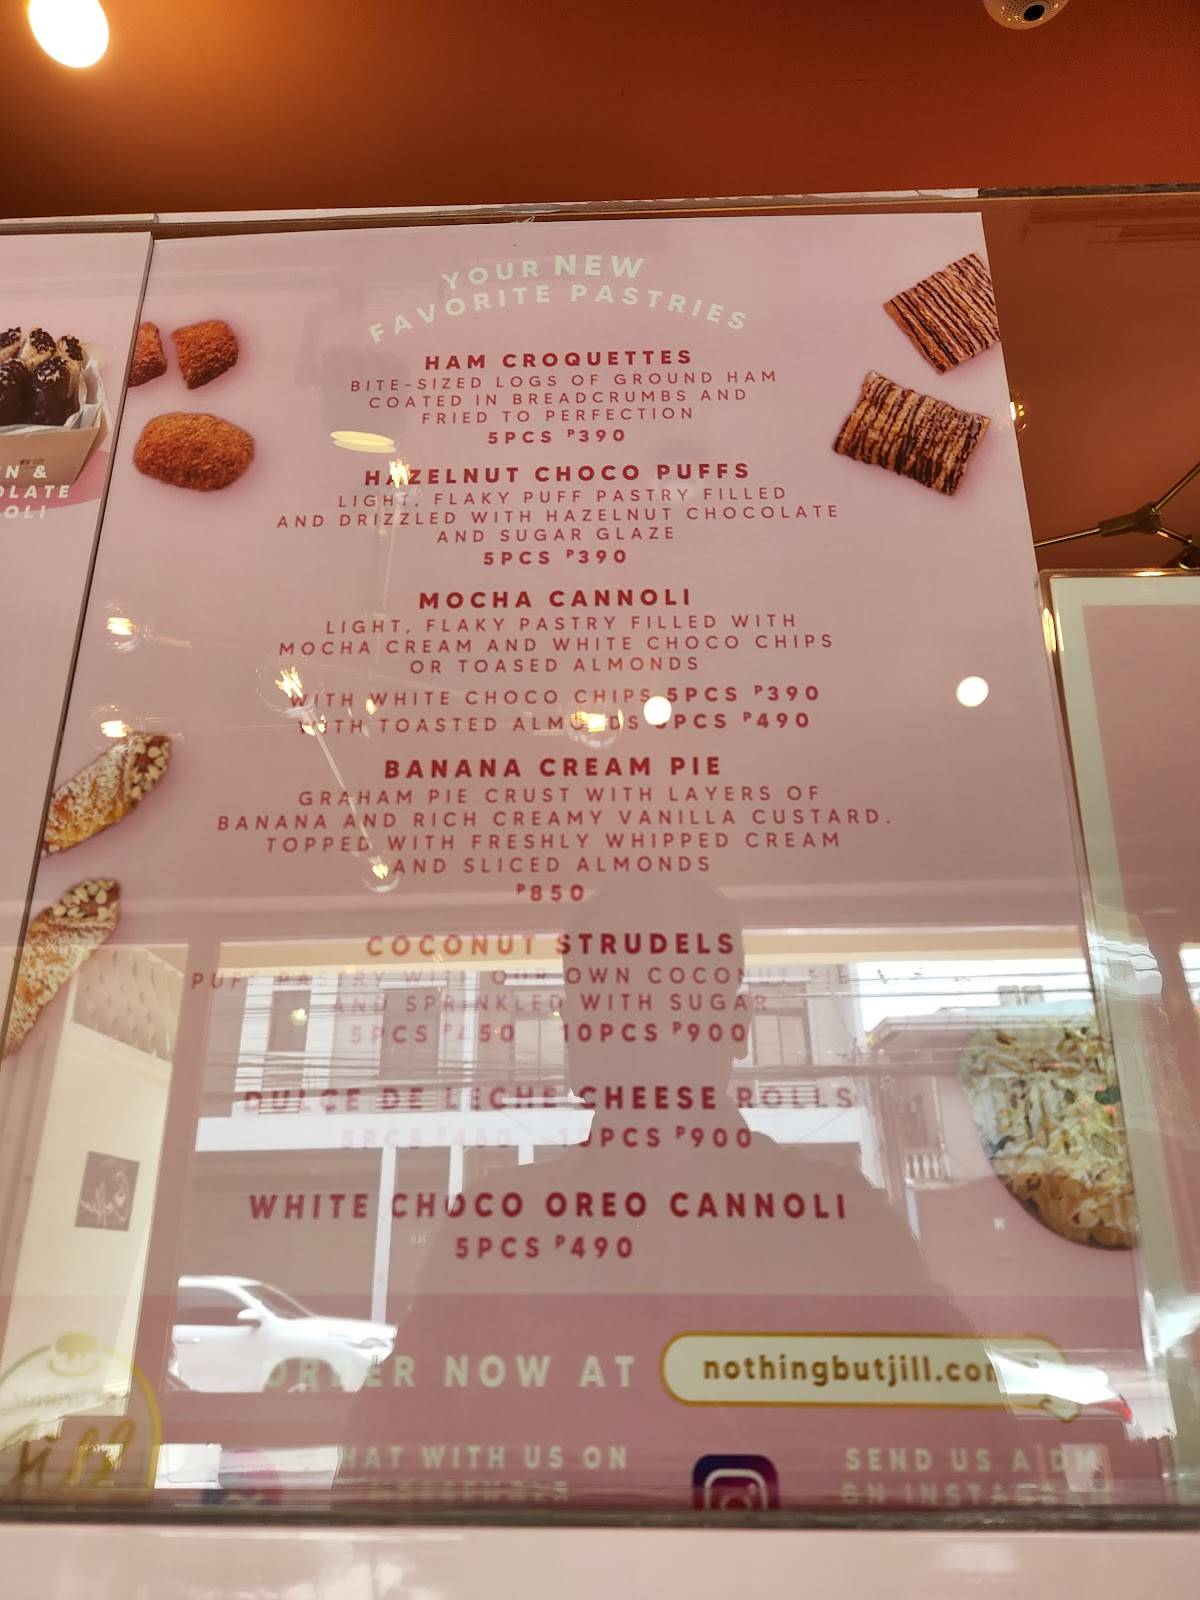 YOUR NEW
FAVORITE PASTRIES
HAM CROQUETTES
BITE-SIZED LOGS OF GROUND HAM
COATED IN BREADCRUMBS AND
FRIED TO PERFECTION
5PCS ₱390
HAZELNUT CHOCO PUFFS
LIGHT, FLAKY PUFF PASTRY FILLED
AND DRIZZLED WITH HAZELNUT CHOCOLATE
AND SUGAR GLAZE
5PCS ₱390
MOCHA CANNOLI
LIGHT, FLAKY PASTRY FILLED WITH
MOCHA CREAM AND WHITE CHOCO CHIPS
OR TOASED ALMONDS
WITH WHITE CHOCO CHIPS 5PCS ₱390
WITH TOASTED ALMONDS 5PCS ₱490
BANANA CREAM PIE
GRAHAM PIE CRUST WITH LAYERS OF
BANANA AND RICH CREAMY VANILLA CUSTARD.
TOPPED WITH FRESHLY WHIPPED CREAM
AND SLICED ALMONDS
₱850
COCONUT STRUDELS
PUFF PASTRY WITH OUR OWN COCONUT
AND SPRINKLED WITH SUGAR
5PCS ₱450 10PCS ₱900
DULCE DE LECHE CHEESE ROLLS
5PCS ₱450 10PCS ₱900
WHITE CHOCO OREO CANNOLI
5PCS ₱490
ORDER NOW AT nothingbutjill.com
CHAT WITH US ON
SEND US A DM
ON INSTAGRAM
N &
OLATE
OLI